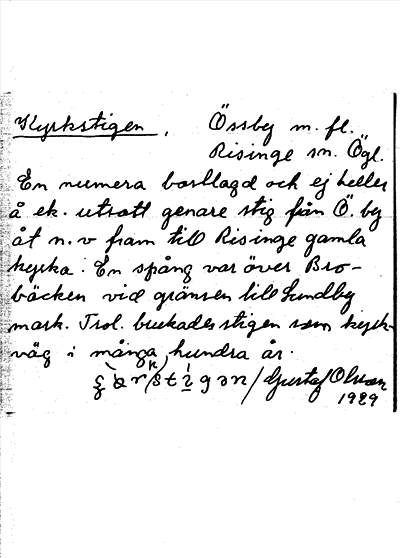 Kyrkstigen, Össby m. fl.
Risinge sn. Ögl.
En numera bortlagd och ej heller
å ek. utsatt genare stig från Ö. by
åt n.v fram till Risinge gamla
kyrka. En spång var över Bro-
bäcken vid gränsen till Lundby
mark. Trol. brukades stigen som kyrk-
väg i många hundra år.
Gustaf Olsson
1929